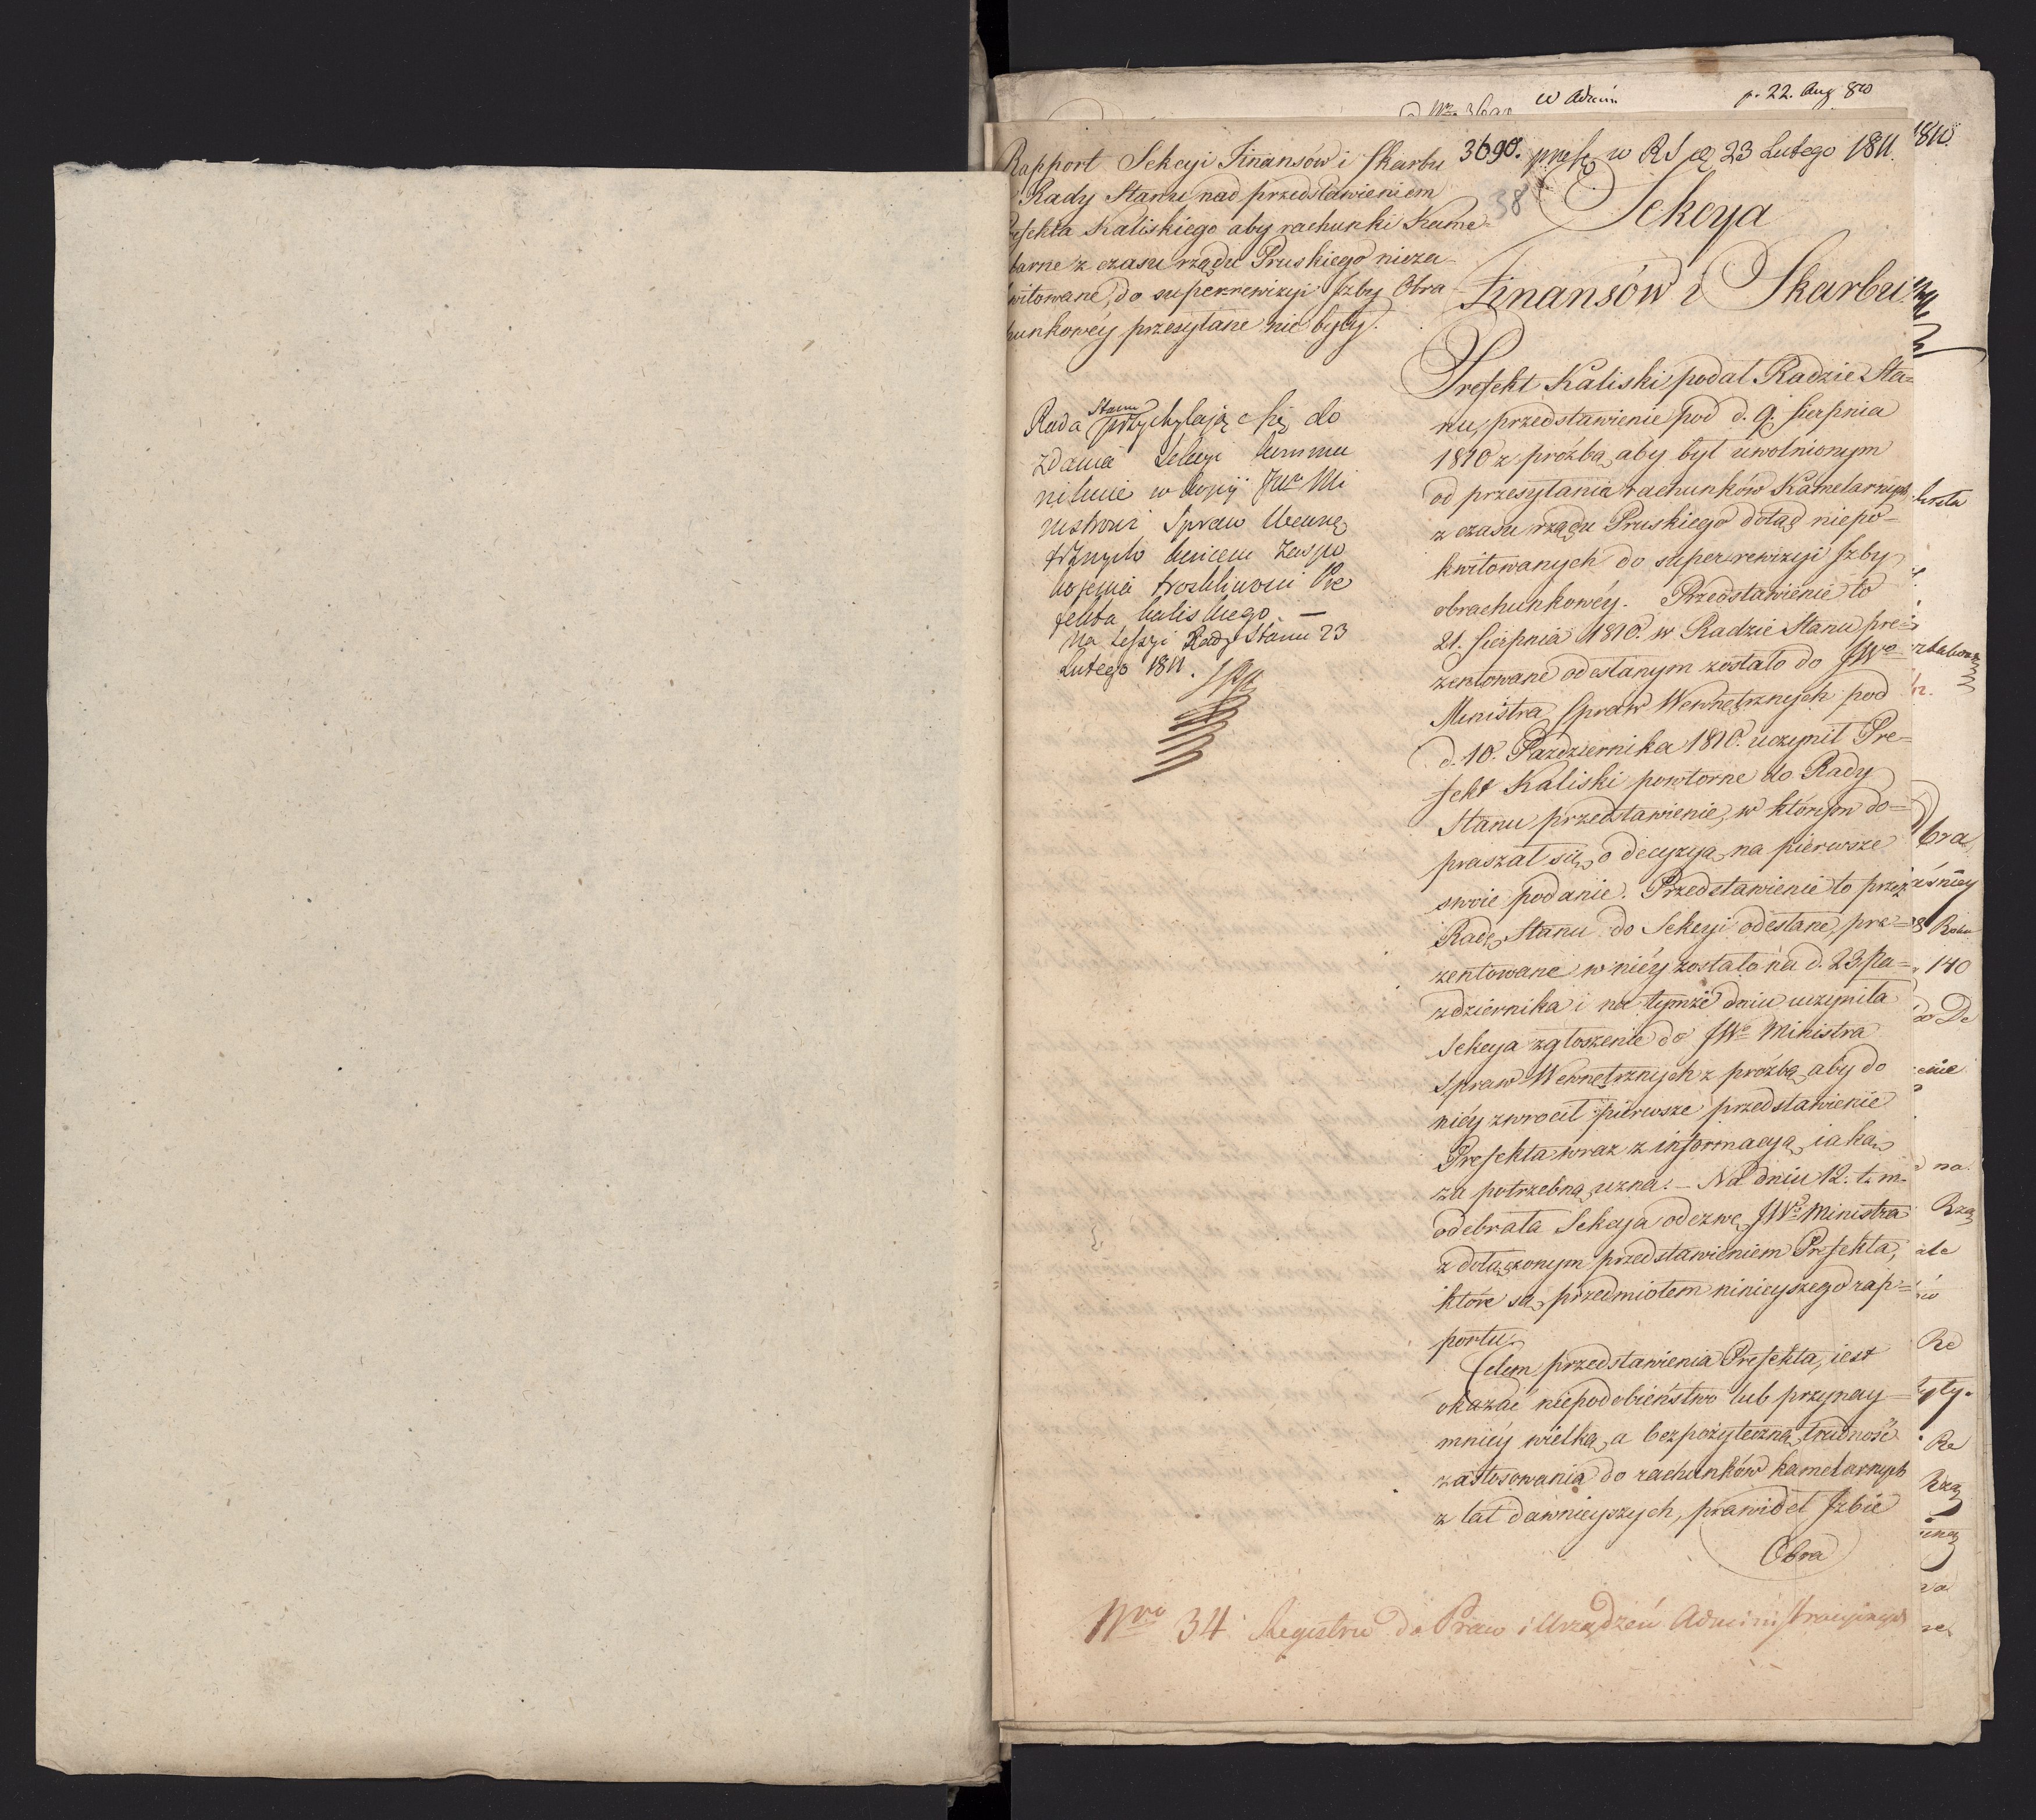 W Admin. p. 22. Aug 810
3690. w RS d 23 Lutego 1811.
38
Rapport Sekcyi Finansów i Skarbu
Rady Stanu nad przedstawieniem
Prefekta Kaliskiego aby rachunki Kame-
larne z czasu rządu Pruskiego nieza-
kwitowane, do superrewizyi Izby Obra-
hunkowéy przesyłane nie były.
Rada Stanu przychylając się do
zdania Sekcyi kommu
nikuie w kopij JW Mi
nistrowi Spraw Wewnę
trznych końcem zaspo
kojenia troskliwości Pre
fekta kaliskiego. —
Na Sessyi Rady Stanu 23
Lutego 1811.
Sekcya
Finansów i Skarbu
Prefekt Kaliski podał Radzie Sta=
nu, przedstawienie pod d. 9. Sierpnia
1810 z proźbą, aby był uwolnionym
od przesyłania rachunków Kamelarnych
z czasu rządu Pruskiego dotąd niepo-
kwitowanych do superrewizyi Izby
obrachunkowéy. Przedstawienie to
21. Sierpnia 1810. w Radzie Stanu pre=
zentowane odesłanym zostało do JWo
Ministra Spraw Wewnętrznych pod
d. 10. Pazdziernika 1810. uczynił Pre=
fekt Kaliski powtorne do Rady
Stanu przedstawienie, w którym do=
praszał się o decyzyą na pierwsze
swoie podanie. Przedstawienie to przez
Radę Stanu do Sekcyi odesłane, pre=
zentowane w niéy zostało na d. 23 Pa=
zdziernika i na tymże dniu uczyniła
Sekcya zgłoszenie do JWo Ministra
Spraw Wewnętrznych z proźbą, aby do
niéy zwrocił pierwsze przedstawienie
Prefekta wraz z informacyą, iaką
za potrzebną uzna. — Na dniu 12. t. m.
odebrała Sekcya odezwę JWo Ministra
z dołączonym przedstawieniem Prefekta,
które są przedmiotem ninieyszego rap=
portu.
Celem przedstawienia Prefekta, iest
okazać niepodobieństwo lub przynay=
mniéy wielką, a bezpożyteczną, trudność
zastosowania do rachunków kamelarnych
z lat dawnieyszych, prawideł Izbie
Obra
Nro 34 Registru do Praw i Urządzeń Administracyinych